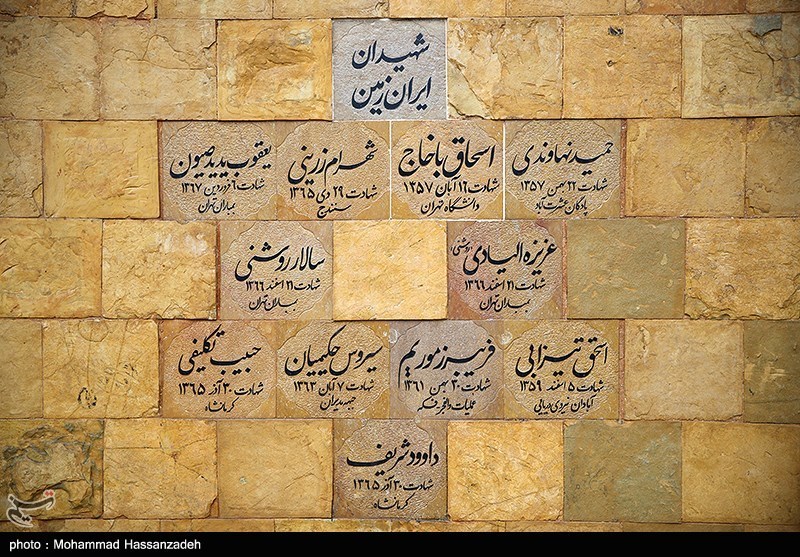 شهیدان
ایران زمین
حمید نهاوندی
شهادت ۲۲ بهمن ۱۳۵۷
پادگان عشرت آباد
اسحاق باخاج
شهادت ۱۶ آبان ۱۳۵۷
دانشگاه تهران
شهرام زرینی
شهادت ۲۹ دی ۱۳۶۵
سنندج
یعقوب یدیدصیون
شهادت ۶ فروردین ۱۳۶۷
بمباران تهران
عزیزه الیادی (روشنی)
شهادت ۲۱ اسفند ۱۳۶۶
بمباران تهران
سالار روشنی
شهادت ۲۱ اسفند ۱۳۶۶
بمباران تهران
اسحق تیزابی
شهادت ۵ اسفند ۱۳۵۹
آبادان نیروی دریایی
فریبرز موریم
شهادت ۲۰ بهمن ۱۳۶۱
عملیات والفجر فکه
سیروس حکیمیان
شهادت ۷ آبان ۱۳۶۳
جبهه
حبیب تکلیفی
شهادت ۳۰ آذر ۱۳۶۵
کرمانشاه
داوود شریف
شهادت ۳۰ آذر ۱۳۶۵
کرمانشاه
تسنیم
photo : Mohammad Hassanzadeh